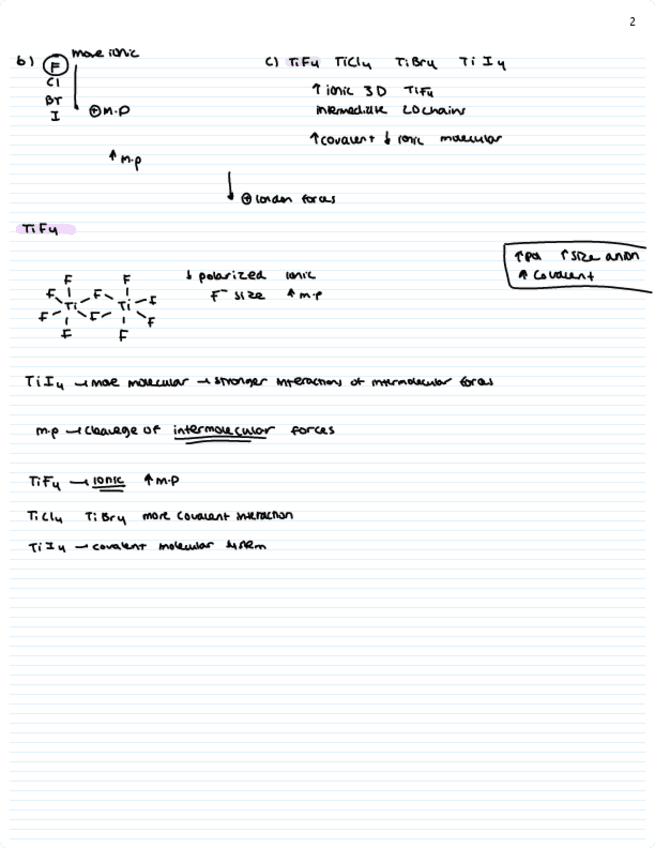 2
b) F more ionic
Cl
Br
I ⊕ m.p
↑ m.p
c) TiF4 TiCl4 TiBr4 TiI4
↑ ionic 3D TiF4
intermediate 2D chains
↑ covalent ↓ ionic molecular
↓ ⊕ london forces
TiF4
↑ pol ↑ size anion
↑ covalent
F F
F Ti F Ti F
F F F
F F
↓ polarized ionic
F⁻ size ↑ m.p
TiI4 → more molecular → stronger interactions of intermolecular forces
m.p → cleavage of intermolecular forces
TiF4 → ionic ↑ m.p
TiCl4 TiBr4 more covalent interaction
TiI4 → covalent molecular